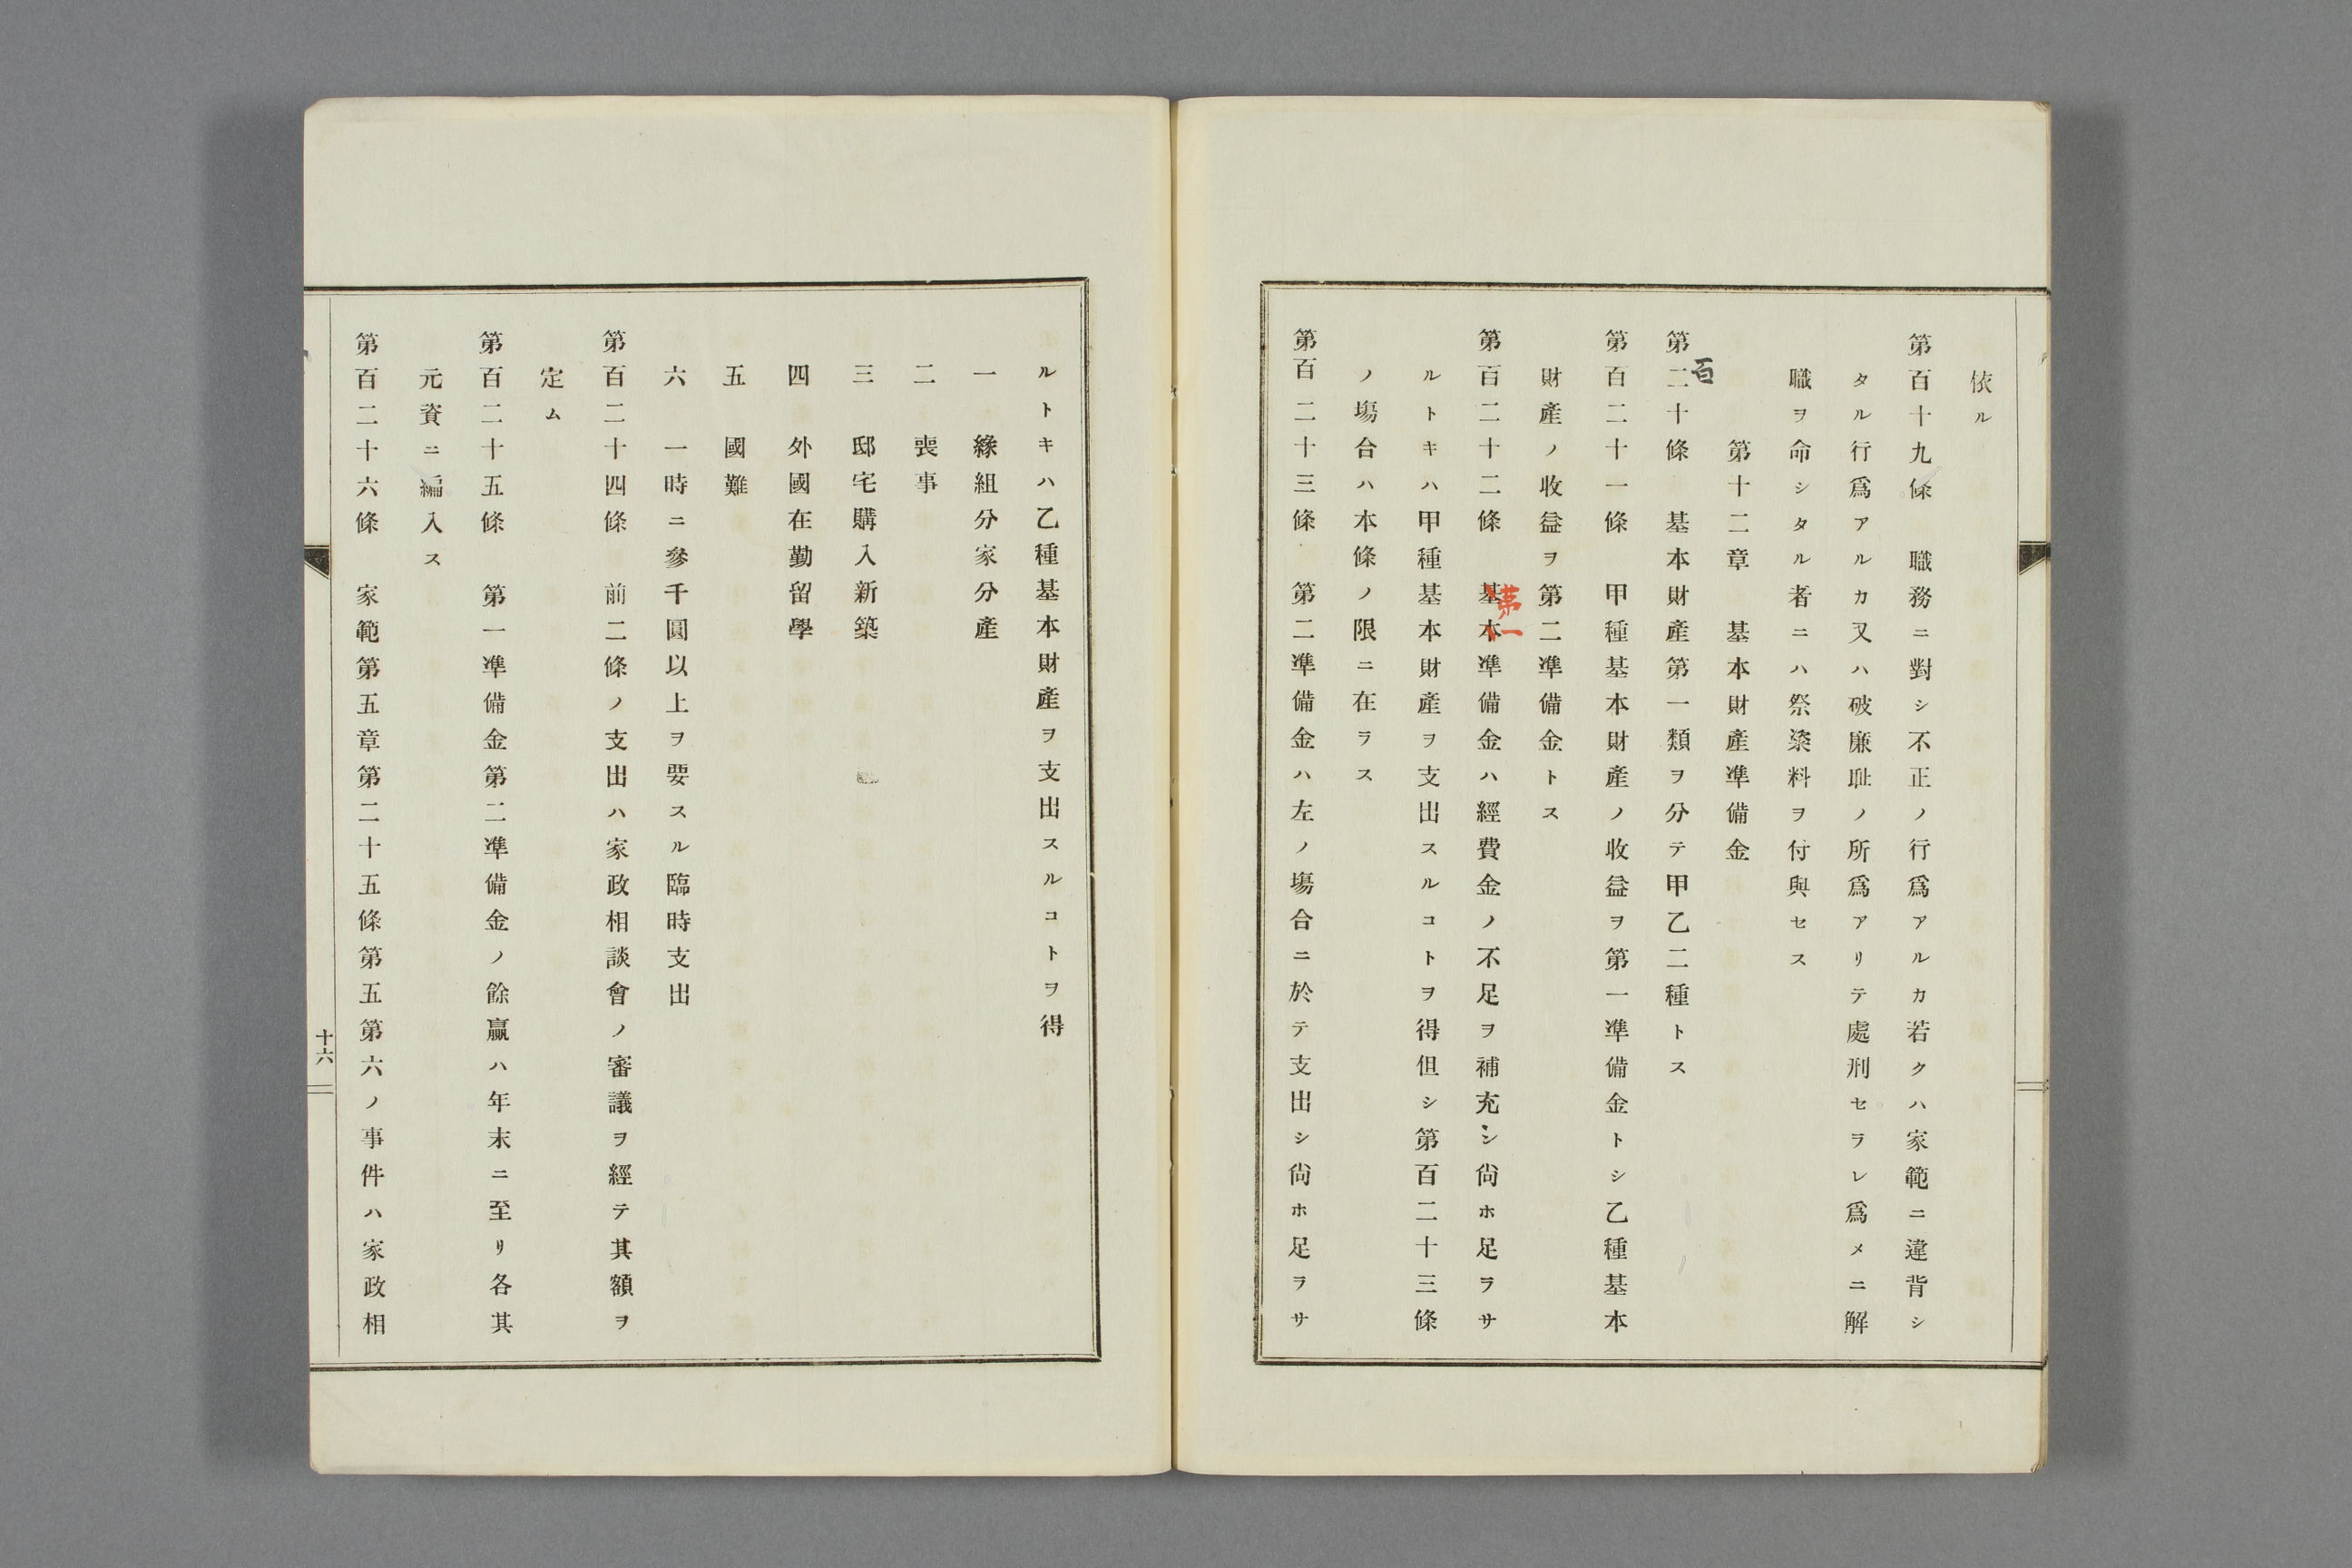 依ル
第百十九條　職務ニ對シ不正ノ行爲アルカ若クハ家範ニ違背シ
タル行爲アルカ又ハ破廉耻ノ所爲アリテ處刑セラレ爲メニ解
職ヲ命シタル者ニハ祭粢料ヲ付與セス
第十二章　基本財產準備金
百
第二十條　基本財產第一類ヲ分テ甲乙二種トス
第百二十一條　甲種基本財產ノ收益ヲ第一準備金トシ乙種基本
財產ノ收益ヲ第二準備金トス
第一
第百二十二條　基本準備金ハ經費金ノ不足ヲ補充シ尙ホ足ラサ
ルトキハ甲種基本財產ヲ支出スルコトヲ得但シ第百二十三條
ノ塲合ハ本條ノ限ニ在ラス
第百二十三條　第二準備金ハ左ノ塲合ニ於テ支出シ尙ホ足ラサ
ルトキハ乙種基本財產ヲ支出スルコトヲ得
一　緣組分家分產
二　喪事
三　邸宅購入新築
四　外國在勤留學
五　國難
六　一時ニ參千圓以上ヲ要スル臨時支出
第百二十四條　前二條ノ支出ハ家政相談會ノ審議ヲ經テ其額ヲ
定ム
第百二十五條　第一準備金第二準備金ノ餘贏ハ年末ニ至リ各其
元資ニ編入ス
第百二十六條　家範第五章第二十五條第五第六ノ事件ハ家政相
十六